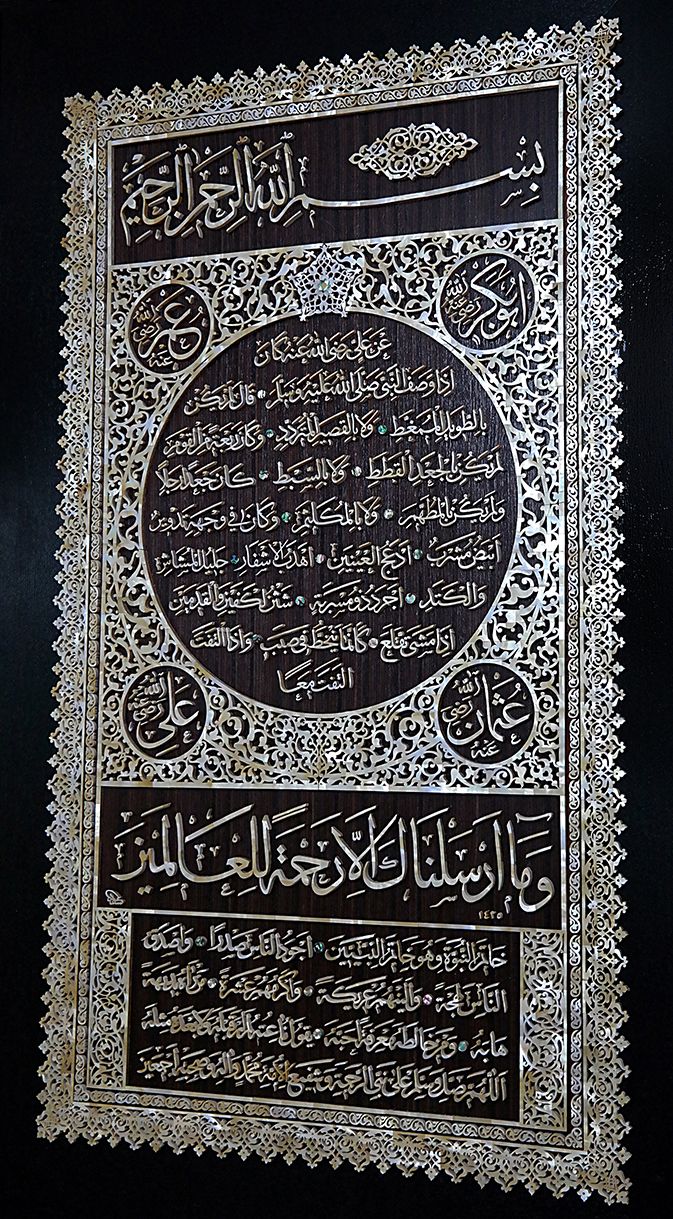 بسم الله الرحمن الرحيم
ابوبكر رضي الله عنه
عمر رضي الله عنه
عن علي رضي الله عنه كان
اذا وصف النبي صلى الله عليه وسلم قال لم يكن
بالطويل الممغط ولا بالقصير المتردد وكان ربعة من القوم
لم يكن بالجعد القطط ولا بالسبط كان جعدا رجلا
ولم يكن بالمطهم ولا بالمكلثم وكان في وجهه تدوير
ابيض مشرب ادعج العينين اهدب الاشفار جليل المشاش
والكتد اجرد ذو مسربة شثن الكفين والقدمين
اذا مشى تقلع كانما ينحط في صبب واذا التفت
التفت معا
عثمان رضي الله عنه
علي رضي الله
وما ارسلناك الا رحمة للعالمين
١٤٣٥
خاتم النبوة وهو خاتم النبيين اجود الناس صدرا واصدق
الناس لهجة والينهم عريكة واكرمهم عشرة من رآه بديهة
هابه ومن خالطه معرفة احبه يقول ناعته لم ار قبله ولا بعده مثله
اللهم صل وسلم على نبي الرحمة وشفيع الامة محمد واله وصحبه اجمعين